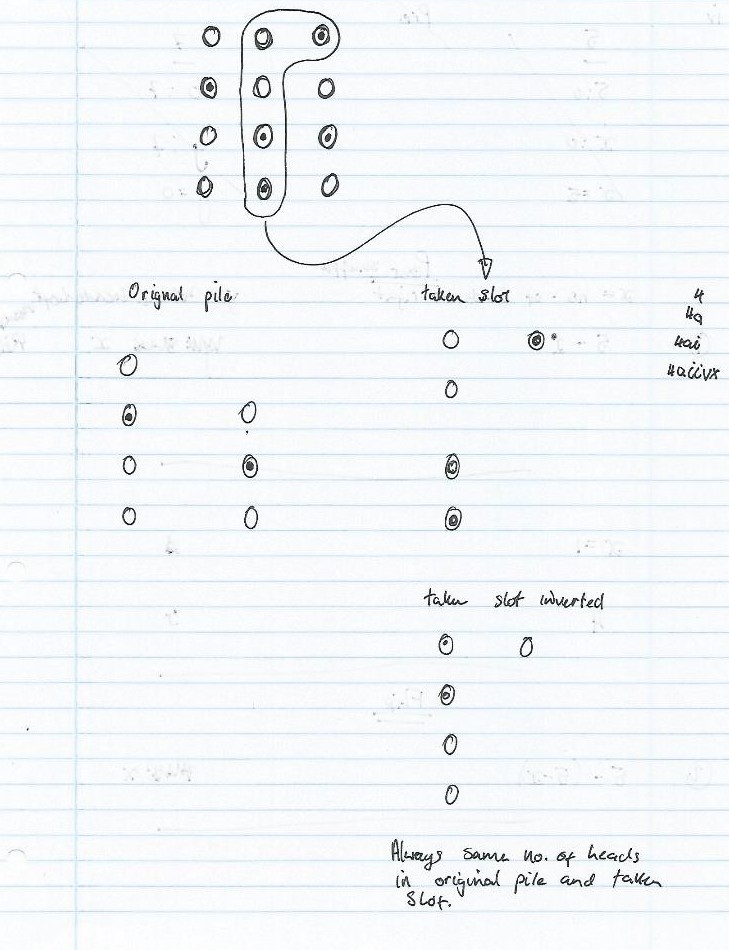 Orignal pile
taken slot
4
4a
4ai
4aiivx
taken slot inverted
Always same no. of heads
in original pile and taken
slot.